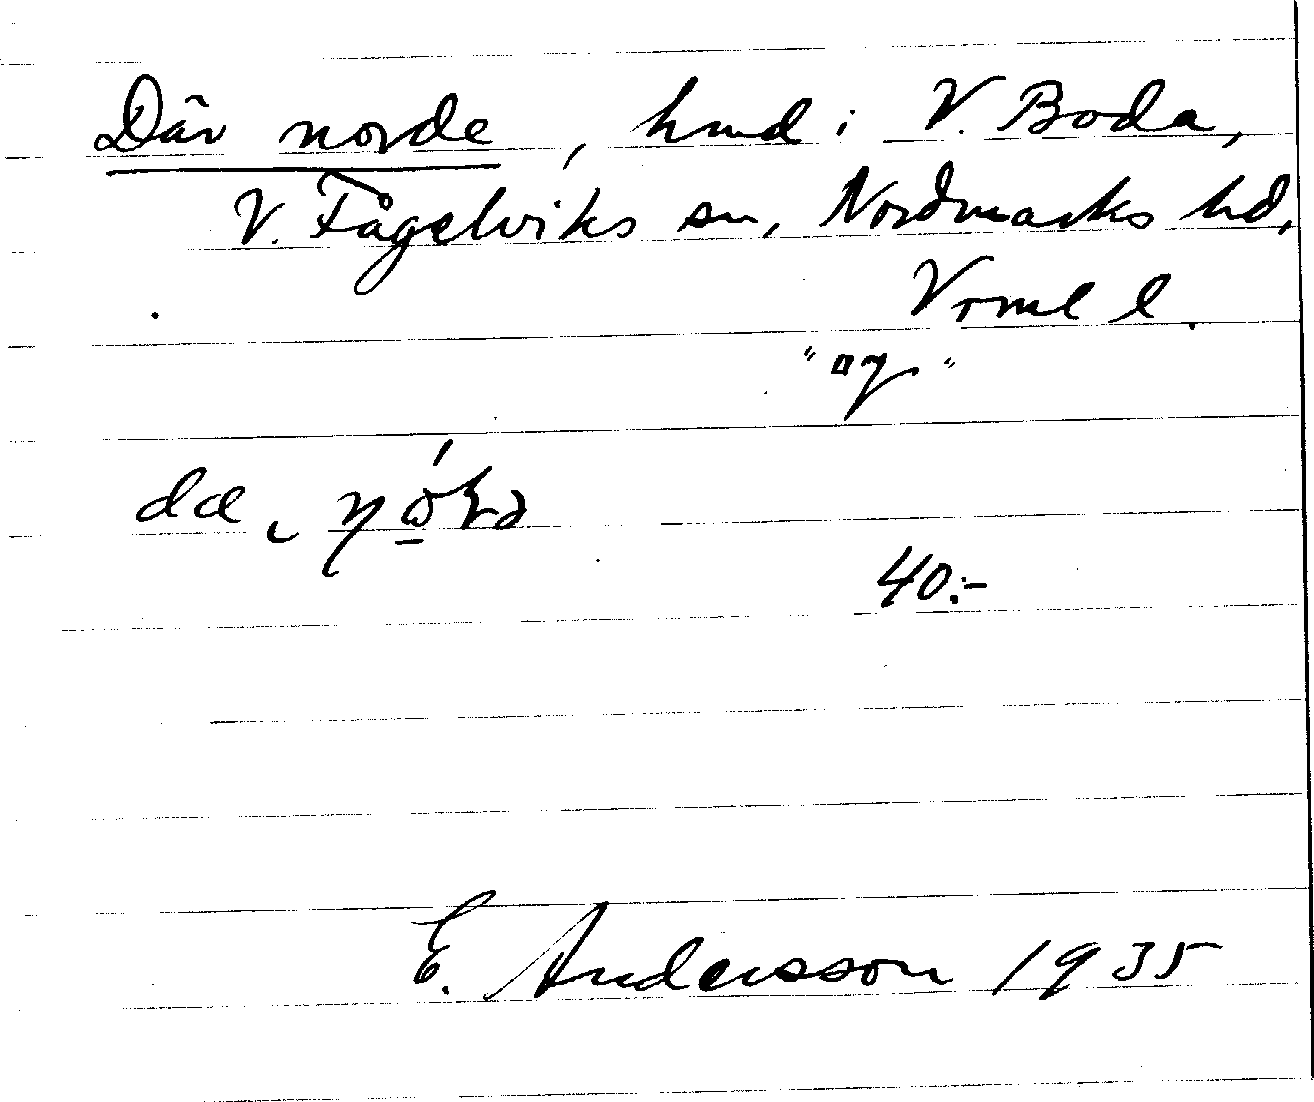 Där norde, hmd i V. Boda,
V. Fågelviks sn, Nordmarks hd,
Vrml l.
40:-
E. Andersson 1935